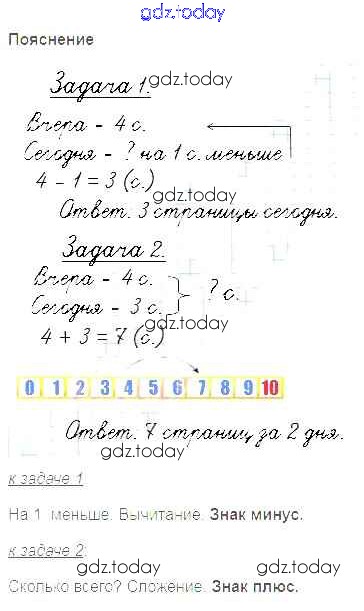 gdz.today
Пояснение
gdz.today
Задача 1.
Вчера - 4 с.
Сегодня - ? на 1 с. меньше
4 - 1 = 3 (с.)
gdz.today
Ответ. 3 страницы сегодня.
Задача 2.
gdz.today
Вчера - 4 с.
Сегодня - 3 с.
? с.
gdz.today
4 + 3 = 7 (с.)
0 1 2 3 4 5 6 7 8 9 10
Ответ. 7 страниц за 2 дня.
gdz.today
к задаче 1
gdz.today
На 1 меньше. Вычитание. Знак минус.
к задаче 2:
gdz.today gdz.today
Сколько всего? Сложение. Знак плюс.